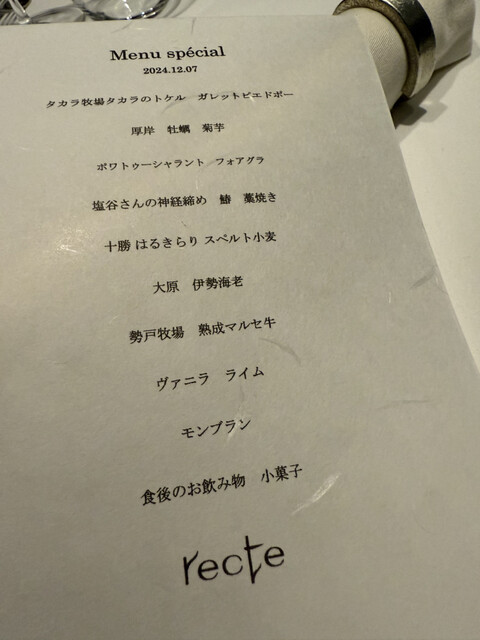 Menu spécial
2024.12.07
タカラ牧場タカラのトケル　ガレットピエドポー
厚岸　牡蠣　菊芋
ポワトゥーシャラント　フォアグラ
塩谷さんの神経締め　鰆　藁焼き
十勝 はるきらり スペルト小麦
大原　伊勢海老
勢戸牧場　熟成マルセ牛
ヴァニラ　ライム
モンブラン
食後のお飲み物　小菓子
recte